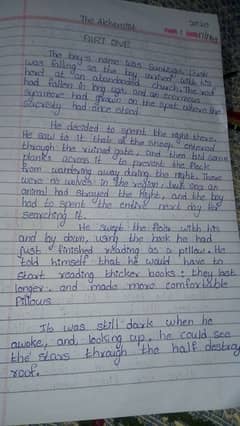 The Alchemist
PART ONE
The boy's name was Santiago. Dusk
was falling as the boy arrived with his
herd at an abandoned church. The roof
had fallen in long ago, and an enormous
sycamore had grown on the spot where the
sacristy had once stood.
He decided to spent the night there.
He saw to it that all the sheep entered
through the ruined gate, and then laid some
planks across it to prevent the flock
from wandering away during the night. There
were no wolves in the region, but once an
animal had strayed the night, and the boy
had to spent the entire next day for
searching it.
He swept the floor with his
and lay down, using the book he had
just finished reading as a pillow. He
told himself that he would have to
start reading thicker books: they last
longer, and made more comfortable
pillows
It was still dark when he
awoke, and, looking up, he could see
the stars through the half destroy
roof.